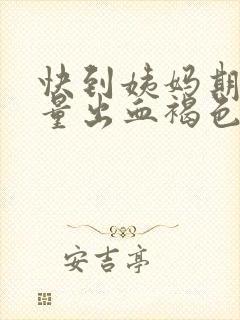 快到姨妈期
量出血褐色
安吉亭